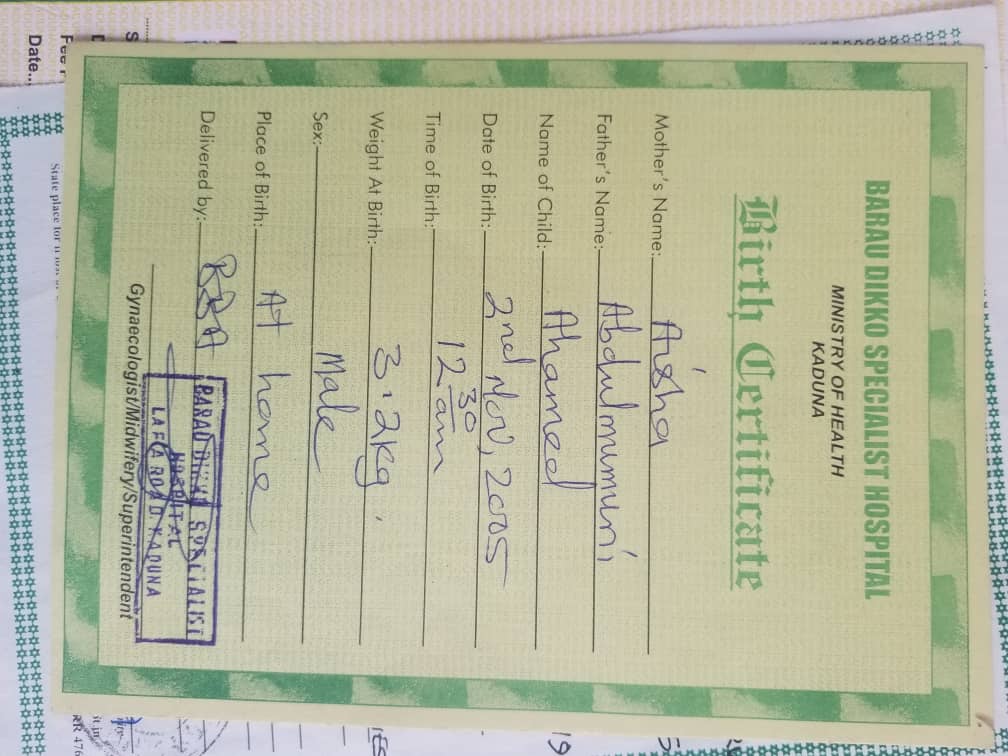 BARAU DIKKO SPECIALIST HOSPITAL
MINISTRY OF HEALTH
KADUNA
Birth Certificate
Mother's Name: Aisha
Father's Name:- Abdulmumuni
Name of Child:- Ahamed
Date of Birth:- 2nd Nov, 2005
Time of Birth:- 12 30 am
Weight At Birth:- 3.2kg.
Sex:- Male
Place of Birth:- At home
Delivered by:- BBA
BARAU DIKKO SPECIALIST
HOSPITAL
LAFIA ROAD KADUNA
Gynaecologist/Midwifery/Superintendent
State place for
Date..
RR 476
19